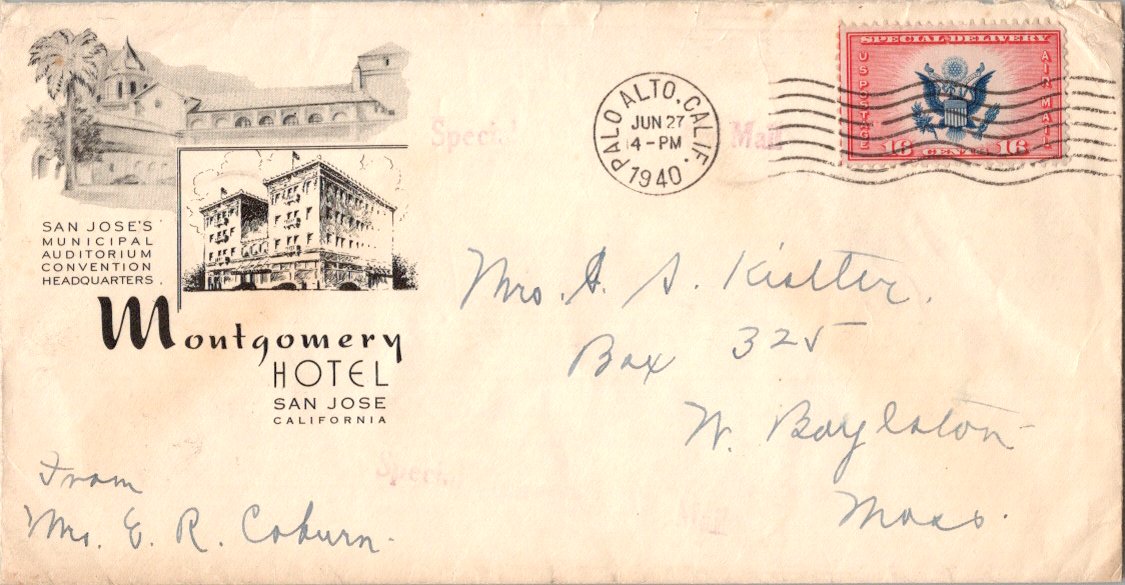 SAN JOSE'S
MUNICIPAL
AUDITORIUM
CONVENTION
HEADQUARTERS.
Montgomery
HOTEL
SAN JOSE
CALIFORNIA
From
Mrs. E. R. Coburn.
PALO ALTO, CALIF.
JUN 27
4-PM
1940
SPECIAL DELIVERY
US POSTAGE
AIR MAIL
16 CENTS 16
Special
Mail
Mrs. A. S. Kistler.
Box 325
W. Boylston
Mass.
Special
Mail